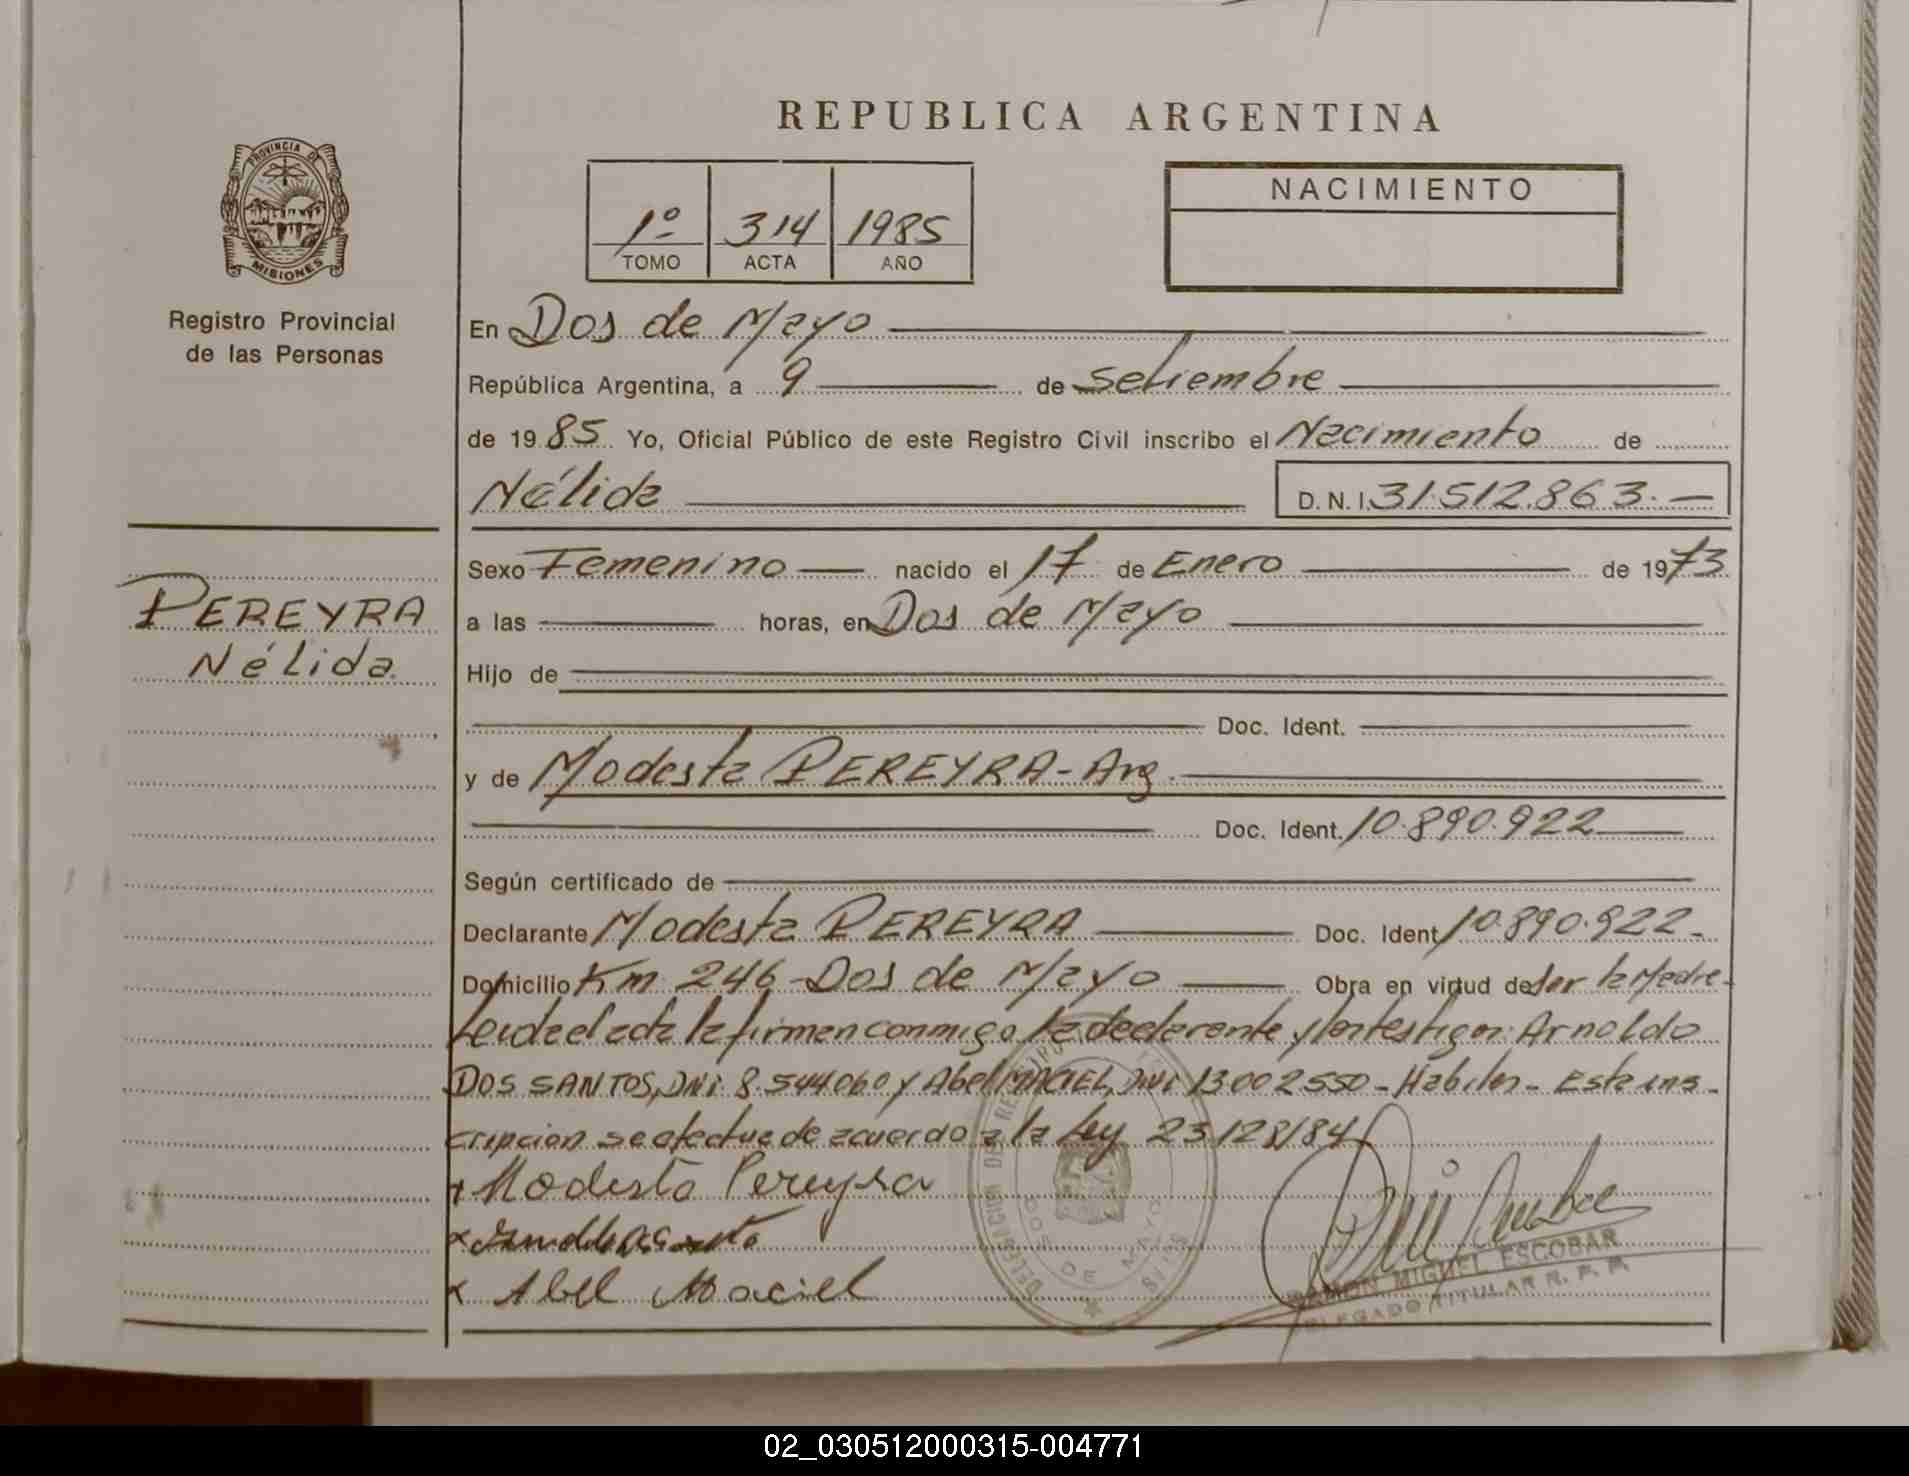 REPUBLICA ARGENTINA
PROVINCIA DE
MISIONES
Registro Provincial
de las Personas
1º 314 1985
TOMO ACTA AÑO
NACIMIENTO
En Dos de Mayo
República Argentina, a 9 de setiembre
de 1985 Yo, Oficial Público de este Registro Civil inscribo el Nacimiento de
Nélida D.N.I. 31.512.863.-
PEREYRA
Nélida
Sexo Femenino nacido el 17 de Enero de 1973
a las horas, en Dos de Mayo
Hijo de
Doc. Ident.
y de Modesta PEREYRA - Arg.
Doc. Ident. 10.890.922
Según certificado de
Declarante Modesta PEREYRA Doc. Ident. 10.890.922-
Domicilio Km 246 - Dos de Mayo Obra en virtud de ser la Madre-
Leida el acta la firman conmigo, la declarante y los testigos: Arnoldo
DOS SANTOS, DNI. 8.544060 y Abel MACIEL, DNI. 13002550 - Habiles - Esta ins-
cripción se efectua de acuerdo a la Ley 23128/84
+ Modesta Pereyra
x
x Abel Maciel
DELEGACION DEL REGISTRO
DOS DE MAYO
RAMON MIGUEL ESCOBAR
DELEGADO TITULAR R. P. P.
02_030512000315-004771